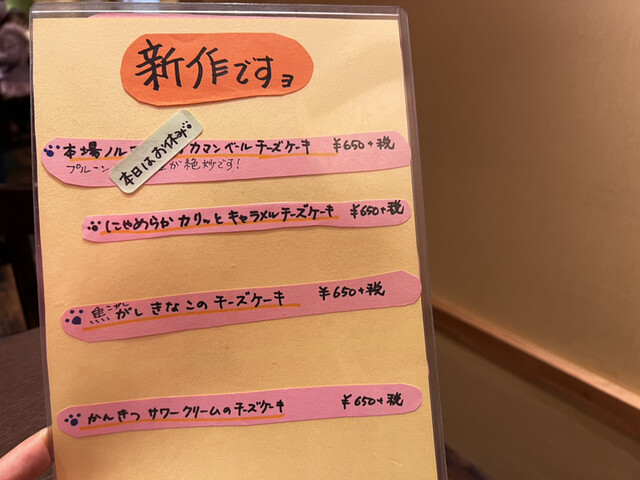 新作ですヨ
本日はお休み
本場ノル カマンベールチーズケーキ ¥650+税
プルーン が絶妙です!
にゃめらかカリッとキャラメルチーズケーキ ¥650+税
焦がしきなこのチーズケーキ ¥650+税
こがし
かんきつサワークリームのチーズケーキ ¥650+税